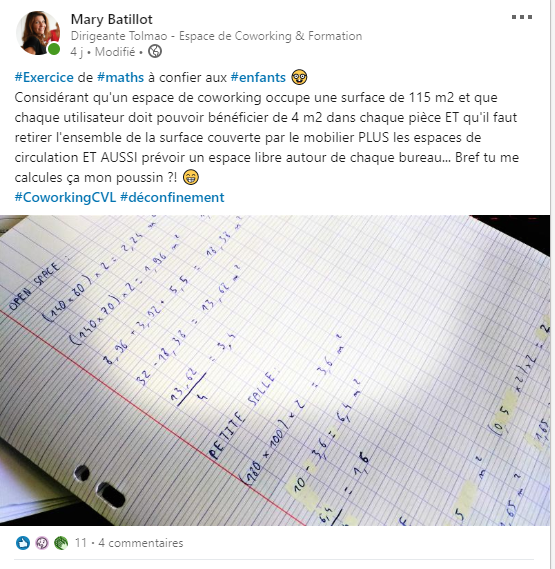 Mary Batillot
Dirigeante Tolmao - Espace de Coworking & Formation
4 j • Modifié •
#Exercice de #maths à confier aux #enfants
Considérant qu'un espace de coworking occupe une surface de 115 m2 et que
chaque utilisateur doit pouvoir bénéficier de 4 m2 dans chaque pièce ET qu'il faut
retirer l'ensemble de la surface couverte par le mobilier PLUS les espaces de
circulation ET AUSSI prévoir un espace libre autour de chaque bureau... Bref tu me
calcules ça mon poussin ?!
#CoworkingCVL #déconfinement
OPEN SPACE :
(140 x 80) x 2 = 2,24 m²
(140 x 70) x 2 = 1,96 m²
8,96 + 3,92 + 5,5 = 18,38 m²
32 - 18,38 = 13,62 m²
13,62 = 3,4
4
PETITE SALLE
(180 x 100) x 2 = 3,6 m²
10 - 3,6 = 6,4 m²
6,4 = 1,6
(0,5 x 2) x 2 = 2
1,65
5 m²
1,65 m²
11 • 4 commentaires